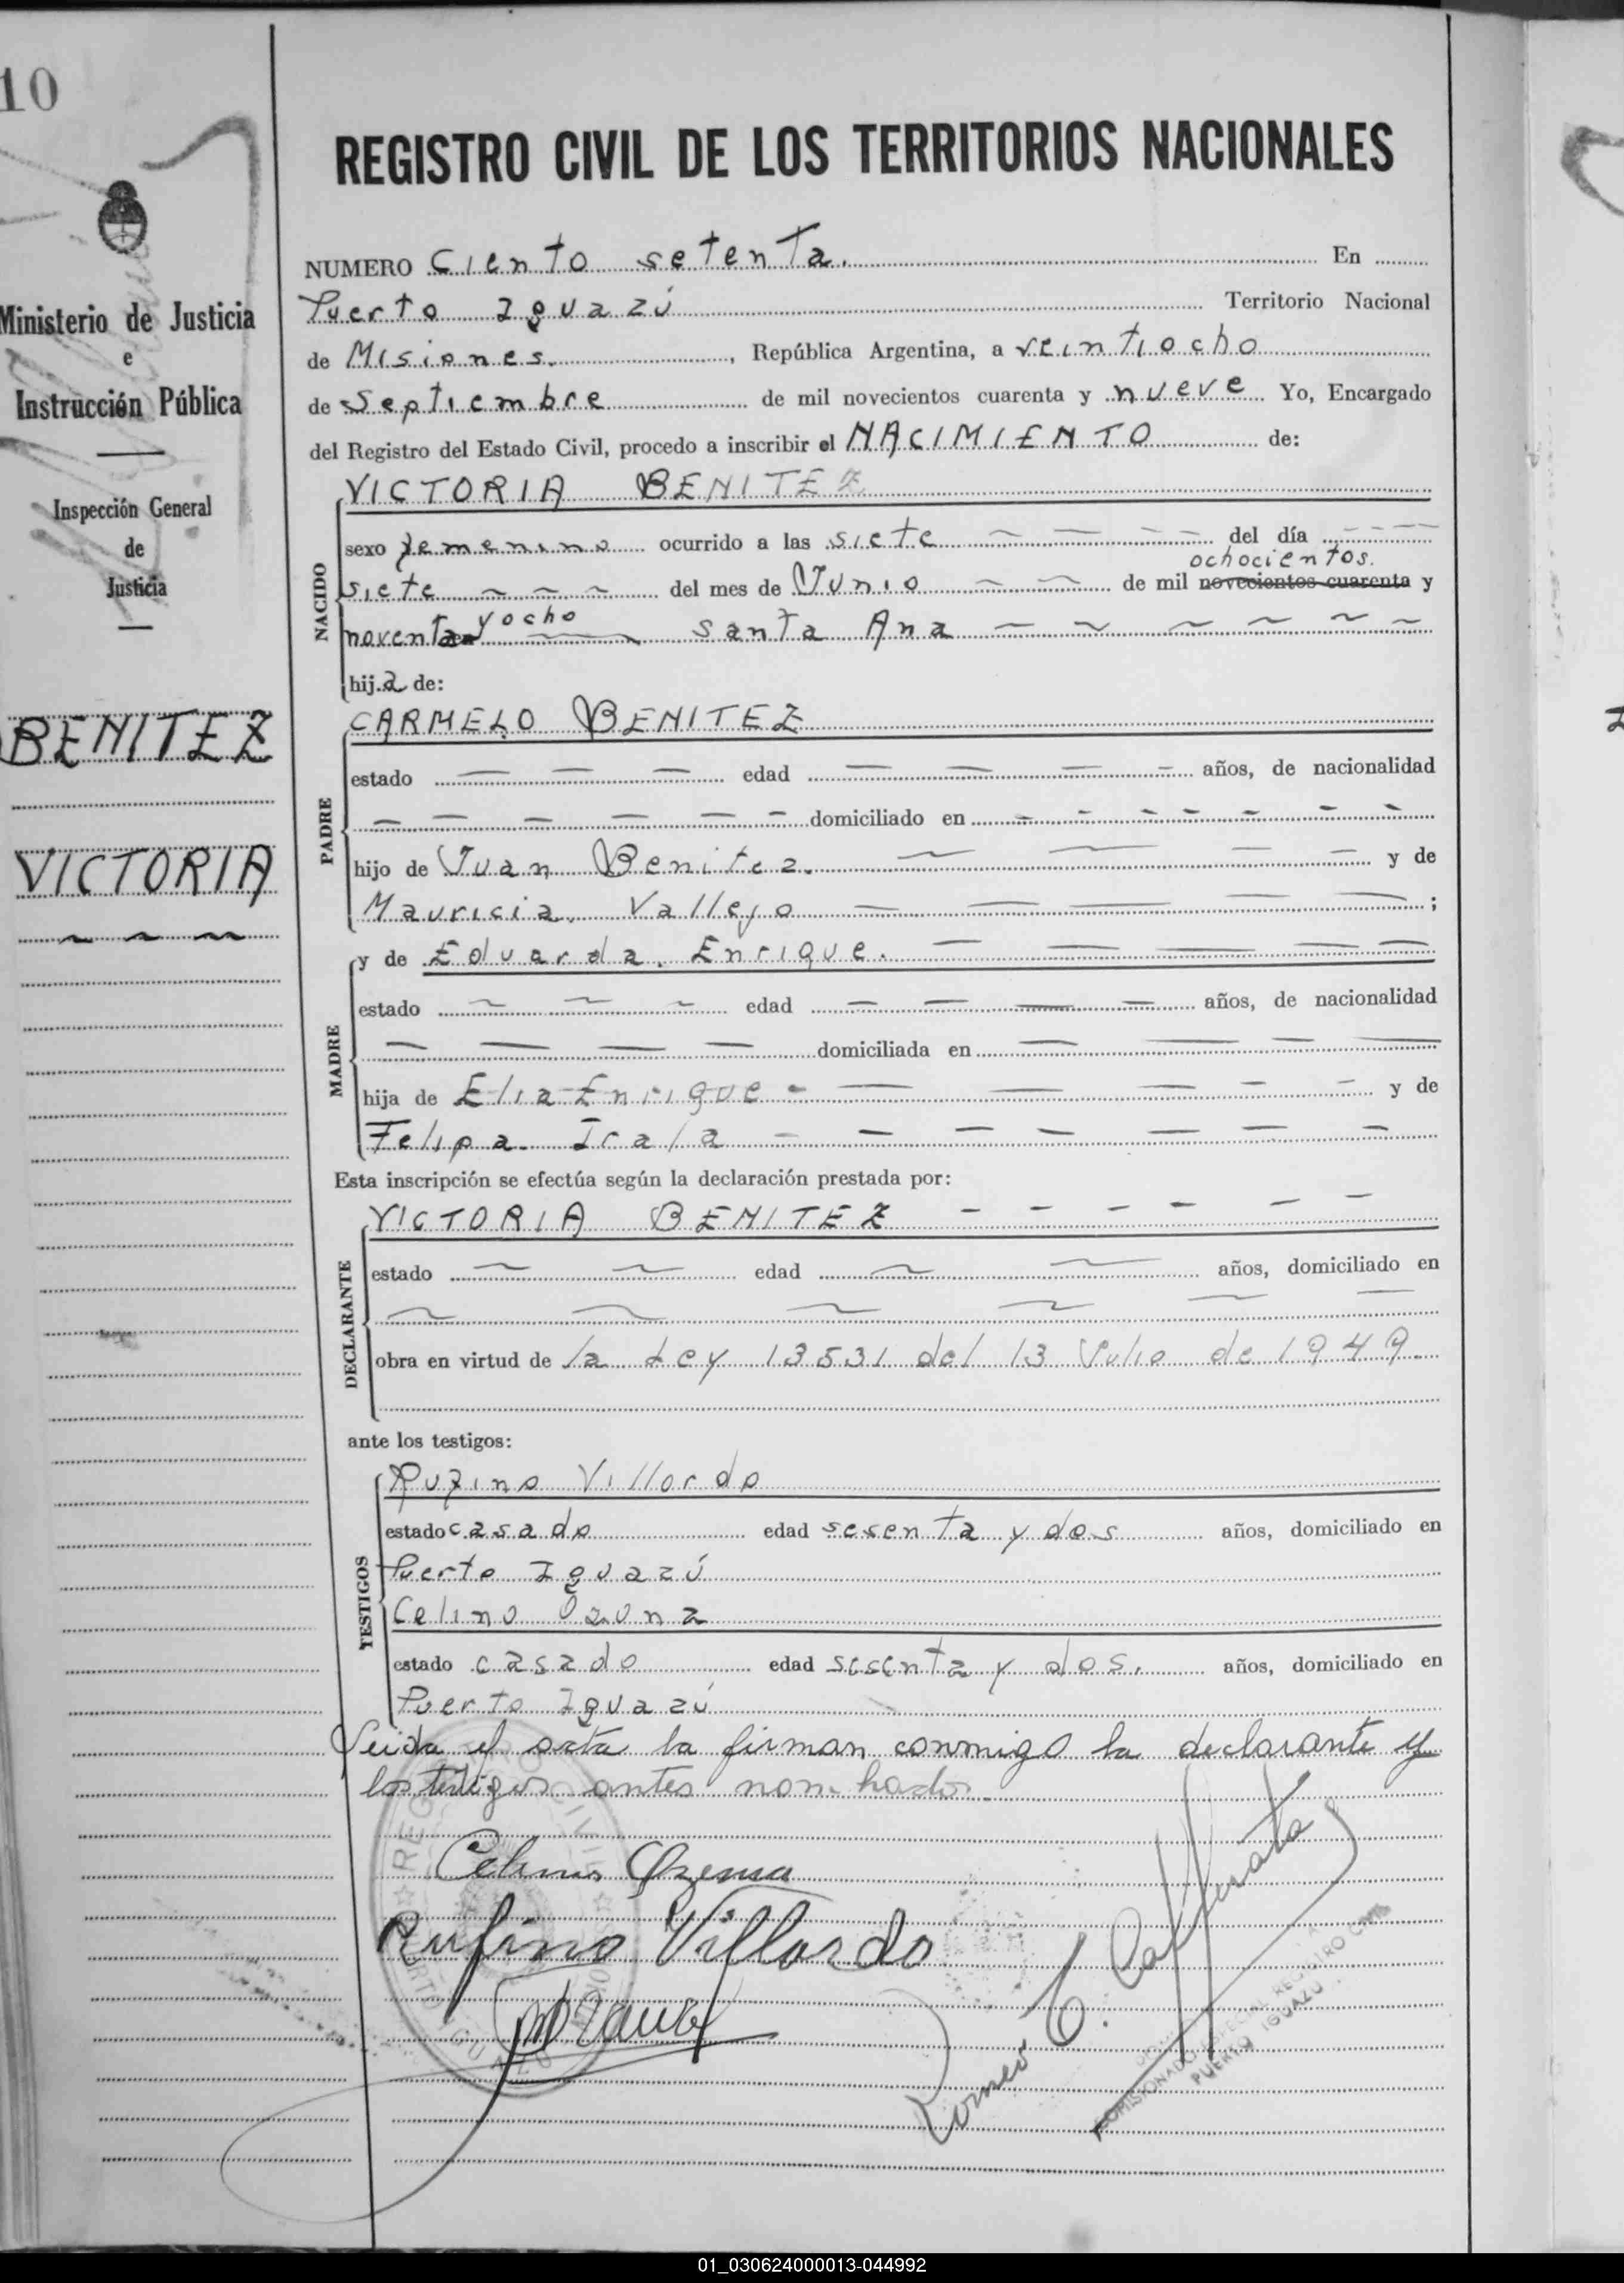 10
Ministerio de Justicia
e
Instrucción Pública
Inspección General
de
Justicia
BENITEZ
VICTORIA
REGISTRO CIVIL DE LOS TERRITORIOS NACIONALES
NUMERO Ciento setenta. En
Puerto Iguazú Territorio Nacional
de Misiones. , República Argentina, a veintiocho
de Septiembre de mil novecientos cuarenta y nueve Yo, Encargado
del Registro del Estado Civil, procedo a inscribir el NACIMIENTO de:
NACIDO
VICTORIA BENITEZ
sexo femenino ocurrido a las siete del día
ochocientos.
siete del mes de Junio de mil novecientos cuarenta y
noventa y ocho Santa Ana
hija de:
PADRE
CARMELO BENITEZ
estado edad años, de nacionalidad
domiciliado en
hijo de Juan Benitez. y de
Mauricia. Vallejo ;
MADRE
y de Eduarda. Enrique.
estado edad años, de nacionalidad
domiciliada en
hija de Elia Enrique - y de
Felipa. Irala
Esta inscripción se efectúa según la declaración prestada por:
DECLARANTE
VICTORIA BENITEZ
estado edad años, domiciliado en
obra en virtud de la Ley 13531 del 13 Julio de 1949.
ante los testigos:
TESTIGOS
Rufino Villordo
estado casado edad sesenta y dos años, domiciliado en
Puerto Iguazú
Celino Ozuna
estado casado edad sesenta y dos. años, domiciliado en
Puerto Iguazú
Leida el acta la firman conmigo la declarante y
los testigos antes nombrados.
Celino Ozuna
Rufino Villordo
Romeo C.
COMISIONADO ESPECIAL REGISTRO CIVIL
PUERTO IGUAZU
01_030624000013-044992